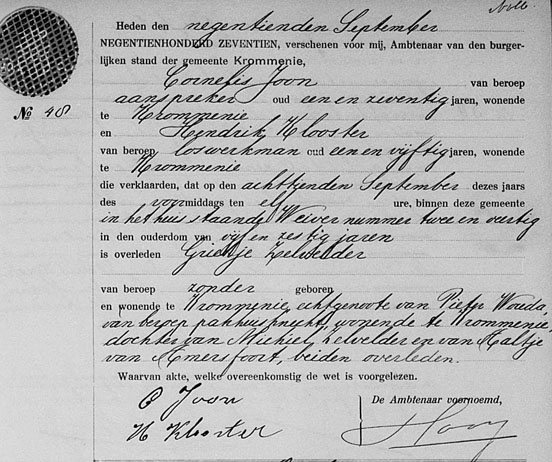 Nº 48
Heden den negentienden September
NEGENTIENHONDERD ZEVENTIEN, verschenen voor mij, Ambtenaar van den burger-
lijken stand der gemeente Krommenie,
Cornelis Joon van beroep
aanspreker oud een en zeventig jaren, wonende
te Krommenie
en Hendrik Klooster
van beroep loswerkman oud een en vijftig jaren, wonende
te Krommenie
die verklaarden, dat op den achttienden September dezes jaars
des voormiddags ten elf ure, binnen deze gemeente
in het huis staande Weiver nummer twee en veertig
in den ouderdom van vijf en zestig jaren
is overleden Grietje Zelvelder
van beroep zonder geboren
en wonende te Krommenie, echtgenoote van Pieter Wouda,
van beroep pakhuisknecht, wonende te Krommenie,
dochter van Michiel Zelvelder en van Aaltje
van Amersfoort, beiden overleden.
Waarvan akte, welke overeenkomstig de wet is voorgelezen.
C Joon De Ambtenaar voornoemd,
H Klooster